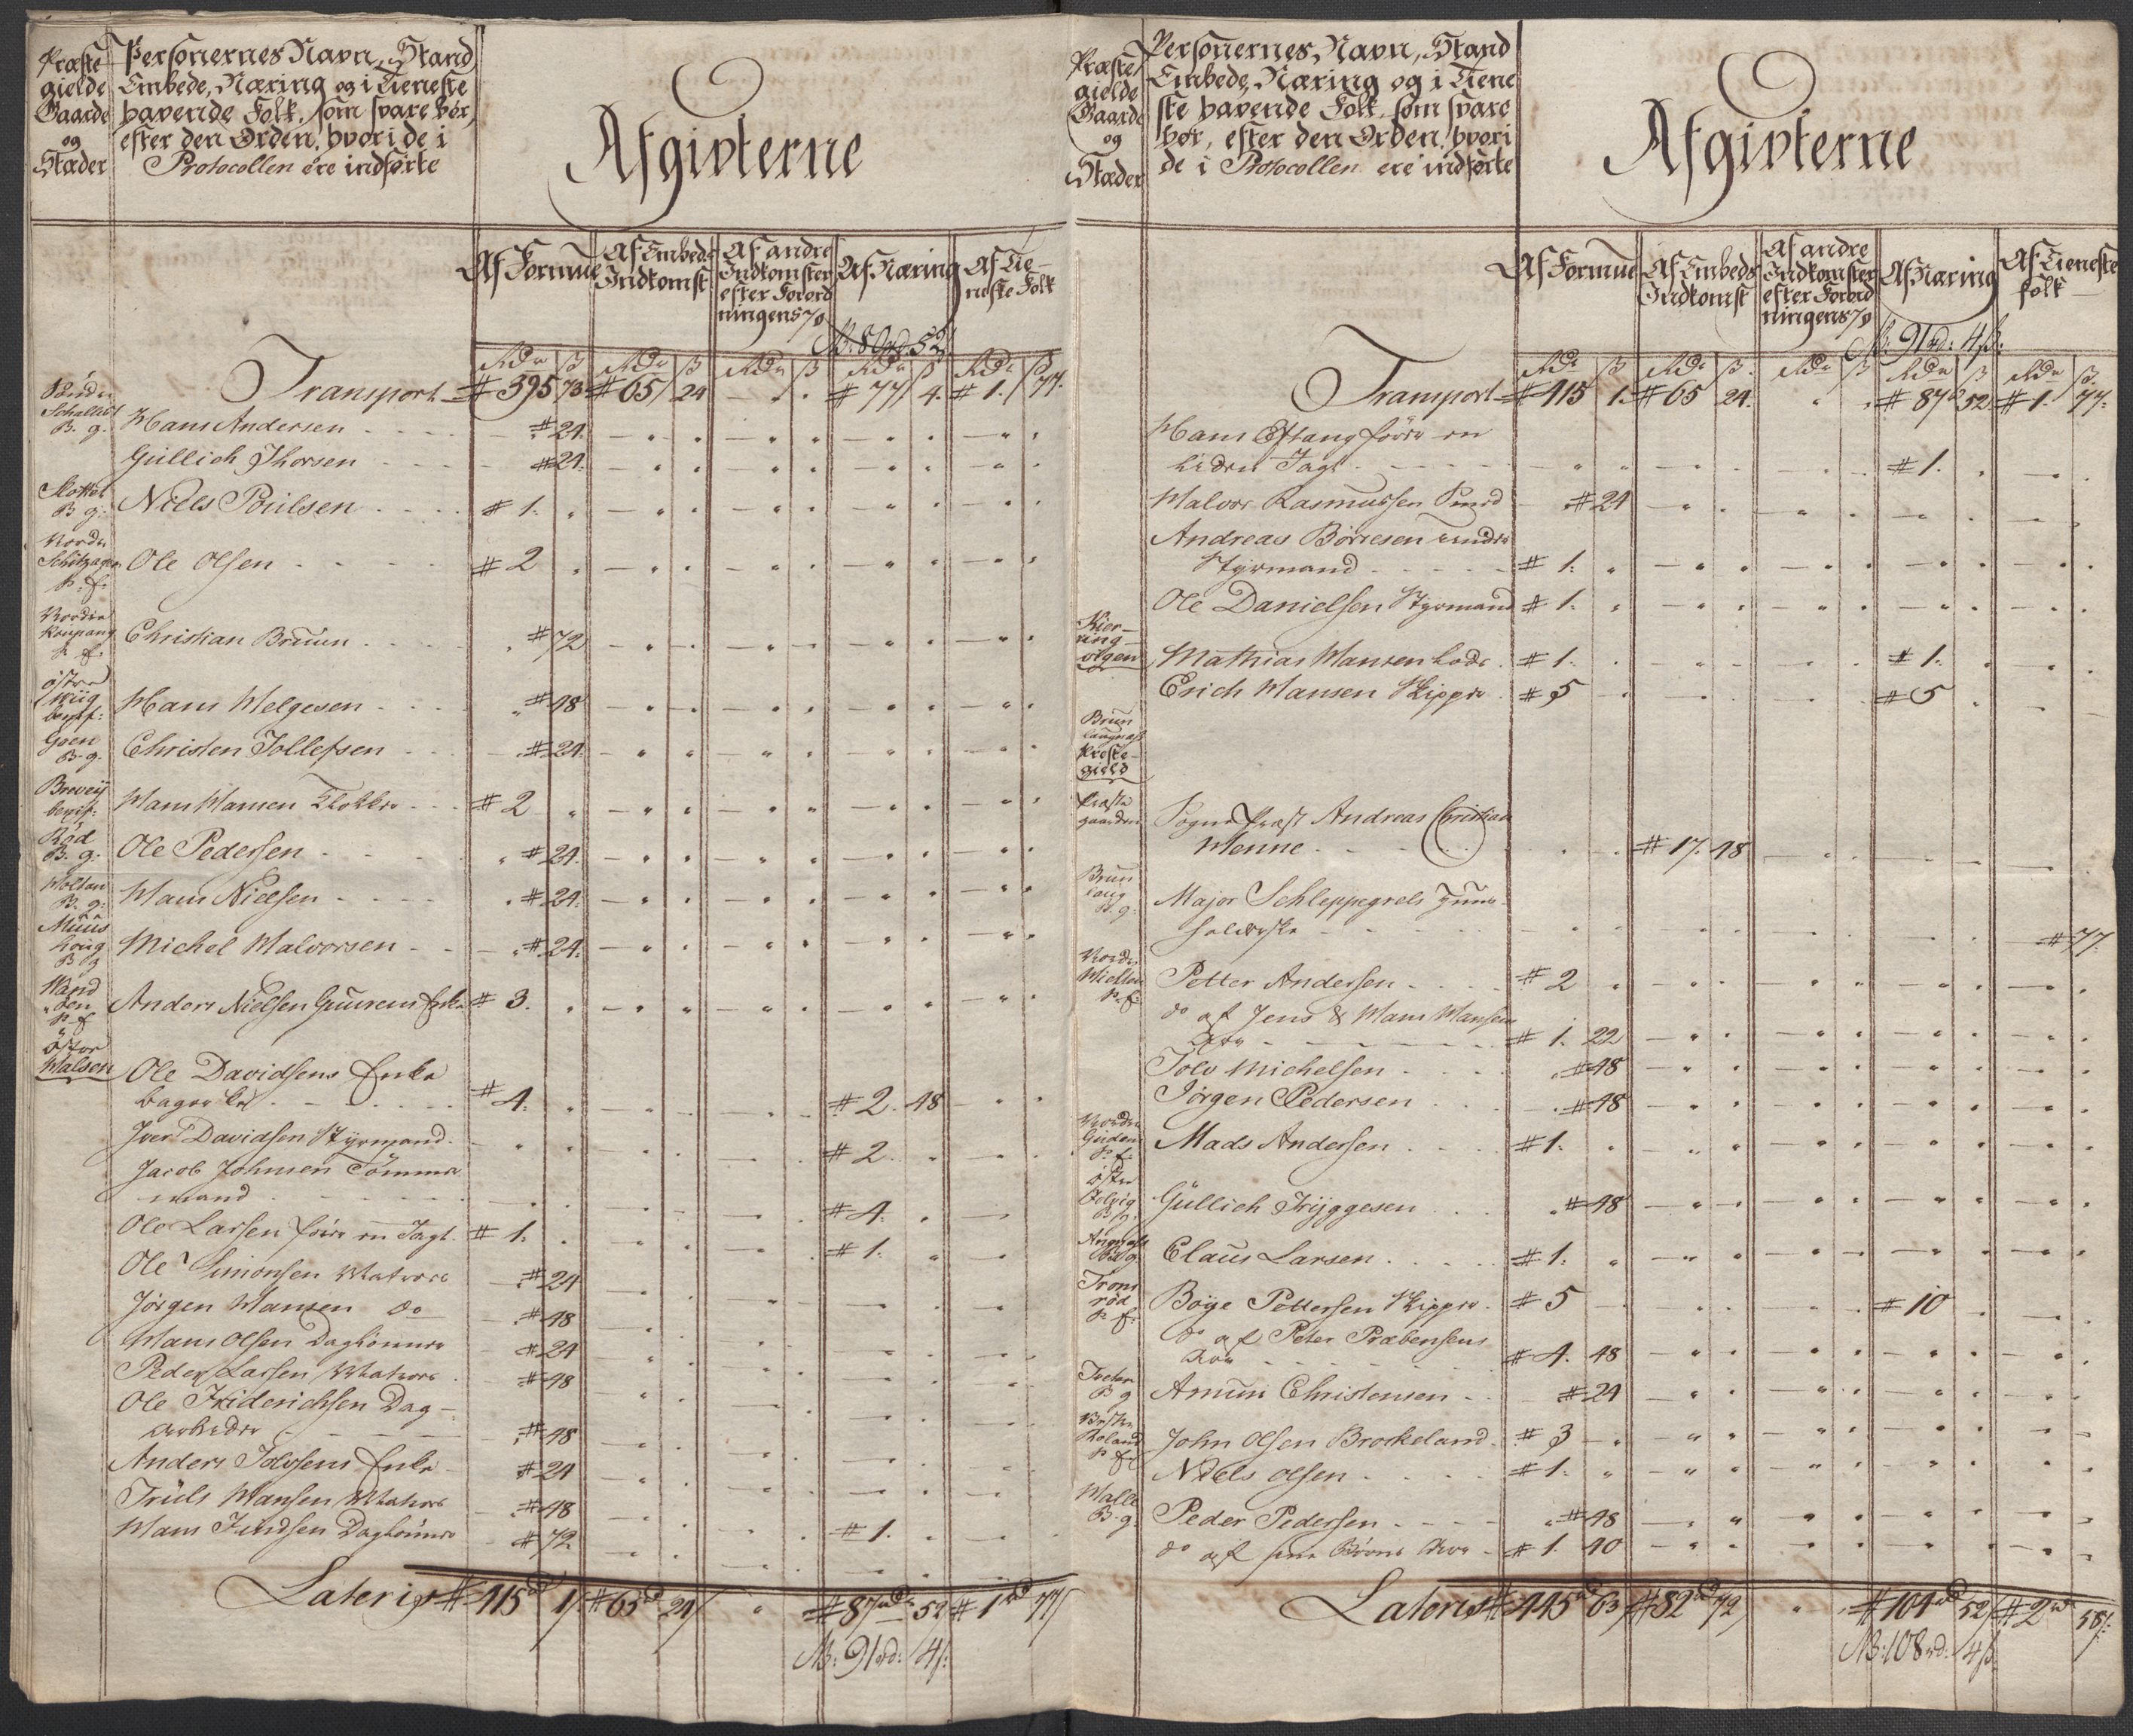 Præste
gielde
Gaarde
og
Stæder
Personernes Navn, Stand
Embede, Næring og i Tieneste
havende Folk, som svare bør,
efter den Orden, hvori de i
Protocollen ere indførte
Afgivterne
Af Formue
Af Embeds Indkomst
Af andre Indkomster efter Forordningens 7 §
Af Næring
Af Tieneste Folk
NB. 80 rd. 52
Rdr ß Rdr ß Rdr ß Rdr ß Rdr ß
Transport # 395 73 # 65 24 # 77 4. # 1. 77.
B. g. Hans Andersen # 24.
Gullich Thorsen # 24.
B g. Niels Poulsen # 1.
Nordre
P. f. Ole Olsen # 2
Nordre
Christian Bruun # 72
Østre
Hans Helgesen # 48
Goen
B. g. Christen Tollefsen # 24.
Brevey
Hans Hansen Klokker # 2
Rød
B. g. Ole Pedersen # 24.
Holtan
B. g. Hans Nielsen # 24.
Muus
houg
B g Michel Halvorsen # 24.
P f Anders Nielsen Guusens Enke # 3.
Øster
Halsen
Ole Davidsens Enke
bager # 4. # 2. 48
Iver Davidsen Styrmand # 2.
Jacob Johnsen Tømmer
mand # 4.
Ole Larsen fører en Jagt # 1. # 1.
Ole Simonsen Matros # 24
Jørgen Hansen do # 48
Hans Olsen Daglønner # 24
Peder Larsen Matros # 48
Ole Friderichsen Dag-
arbeder # 48
Anders Tolvsens Enke # 24
Truls Hansen Matros # 48
Hans Findsen Daglønner # 72 # 1.
Lateris # 415 rd 1 # 65 rd 24 # 87 rd 52 # 1 rd 77
NB: 91 rd: 4 ß:
Præste
gielde
Gaarde
og
Stæder
Personernes Navn, Stand
Embede, Næring og i Tiene
ste havende Folk, som svare
bør, efter den Orden, hvori
de i Protocollen ere indførte
Afgivterne
Af Formue
Af Embeds Indkomst
Af andre Indkomster efter Forordningens 7 §
Af Næring
Af Tieneste folk
NB. 91 rd: 4 ß:
Rdr ß Rdr ß Rdr ß Rdr ß Rdr ß
Transport # 415 1. # 65 24. # 87 52 # 1. 77.
Hans Østang fører en
liden Jagt # 1.
Halvor Rasmussen # 24
Andreas Børresen anden
Styrmand # 1.
Ole Danielsen Styrmand # 1.
Kier-
ring
Mathias Hansen Lods # 1. # 1.
Erich Hansen Skipper # 5 # 5
Brun
laugnæs
Præste-
gield
Præste
gaarden
Sogne Præst Andreas Christian
Wenne # 17. 48
Brun
laug
B. g. Major Schleppegrels Huus-
holderske # 77.
Nordre
P. f. Petter Andersen # 2
do af Jens & Hans Hansens
Arv # 1. 22
Tolv Michelsen # 48
Jørgen Pedersen # 48
Nordre
P. f. Mads Andersen # 1.
Østre
B g. Gullich Trÿggesen # 48
Claus Larsen # 1.
Trons
rød
P. f. Boÿe Pettersen Skipper # 5 # 10
do af Peter Præbensens
Arv # 4. 48
B g Amun Christensen # 24
P f John Olsen Brockeland # 3
Niels Olsen # 1.
Halle
B. g. Peder Pedersen # 48
do af sine Børns Arv # 1. 40
Lateris # 445 rd 63 # 82 rd 72 # 104 rd 52 # 2 rd 58 ß.
NB: 108 rd: 4 ß.